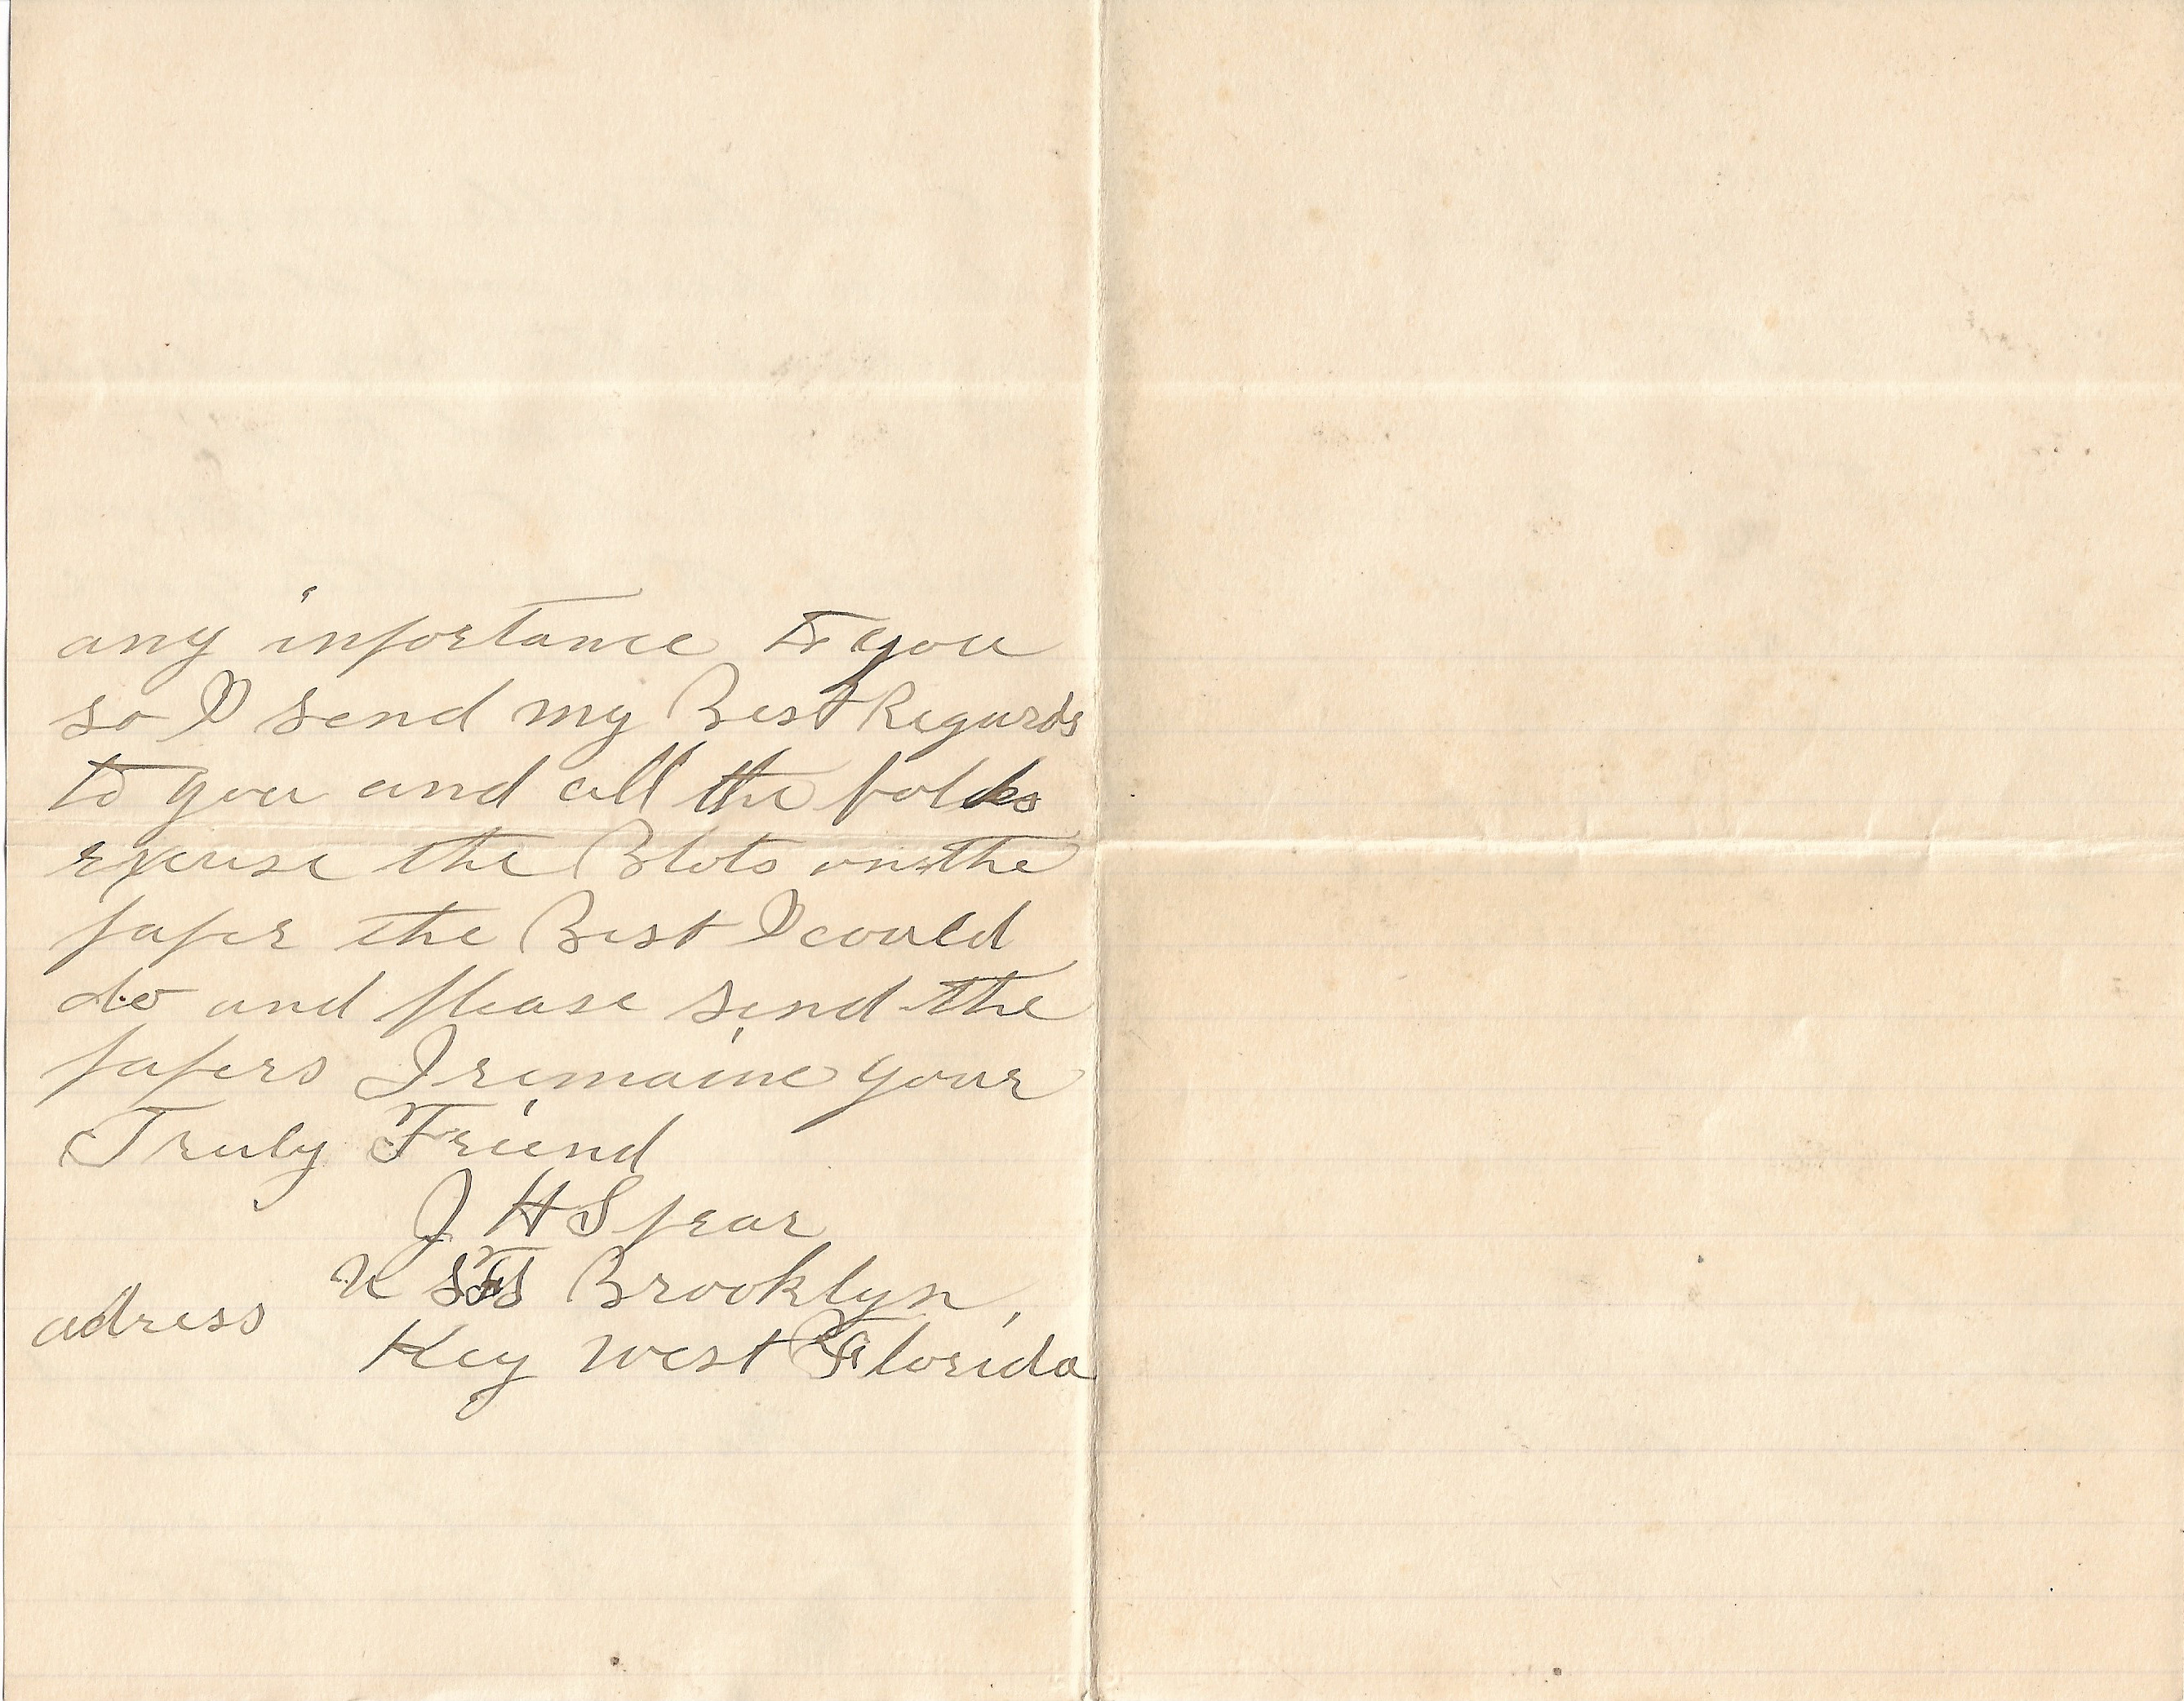 any inportance to you
so I send my Best Regards
to you and all the folks
excuse the Blots on the
paper the Best I could
do and please send the
papers I remaine your
Truly Friend
J H Spear
U S F S Brooklyn,
adress
Key West Florida